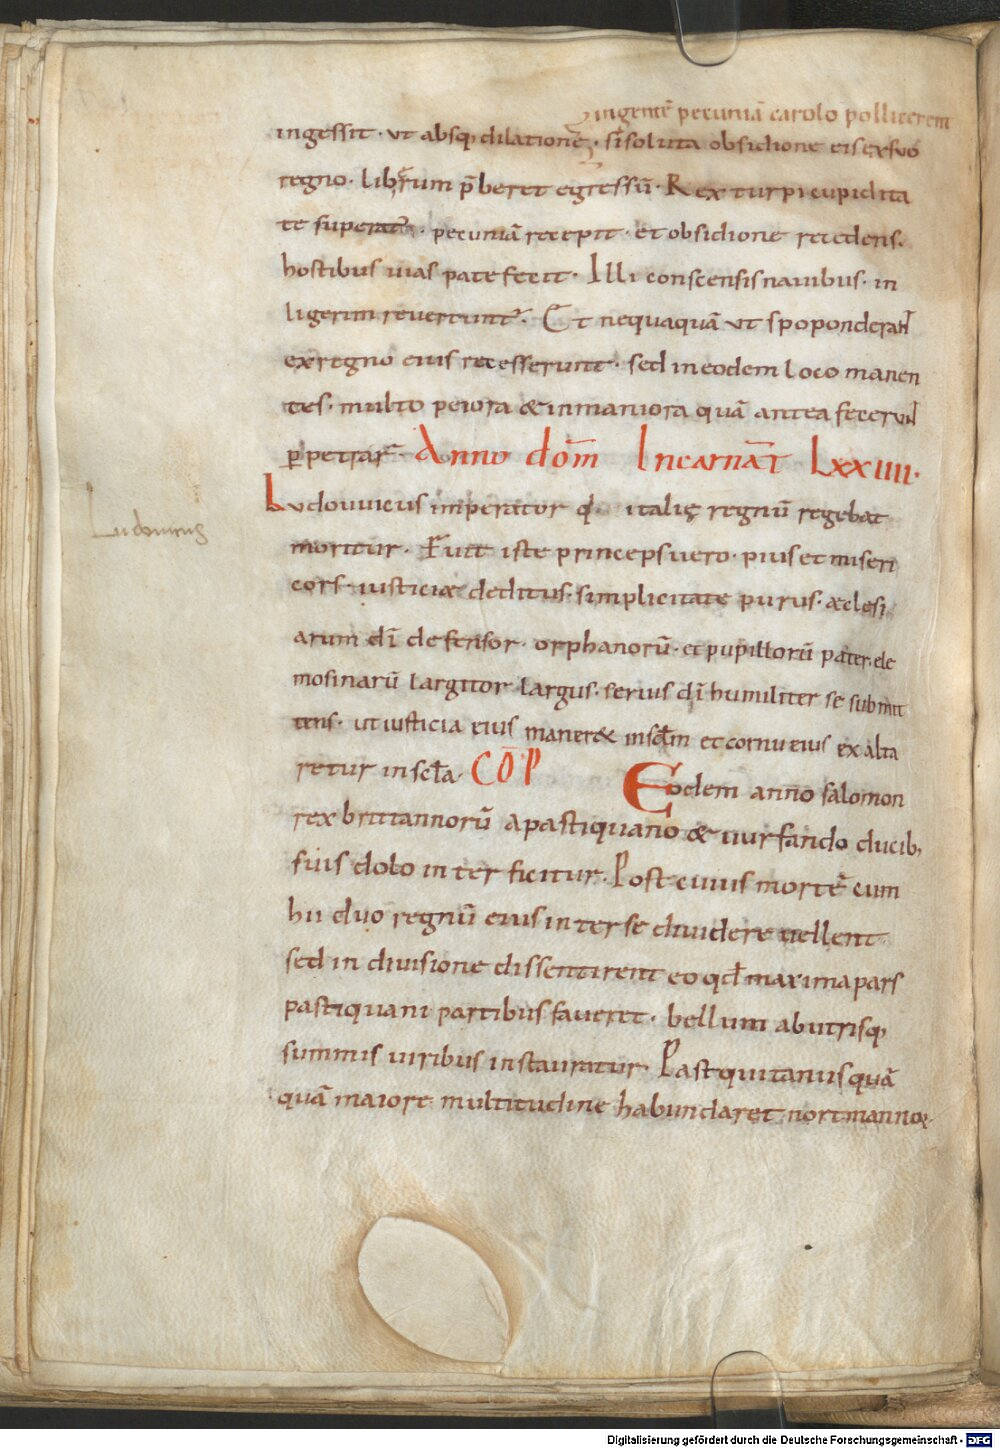 ingentē pecuniā carolo pollicerent
ingessit · ut absq; dilatione · si soluta obsidione eis ex suo
regno · liberum p̄beret egressū · Rex turpi cupidita
te superat᷒ · pecuniā recepit · et obsidione recedens ·
hostibus uias patefecit · Illi conscensis nauibus · in
ligerim reuertunt᷒ · Et nequaquā ut spoponderant
ex regno eius recesserunt · sed in eodem loco manen
tes · multo peiora & inmaniora quā antea fecerunt
ꝑpetrar̄ · Anno dom̄ Incarnat̄ Lxxiiii ·
Ludouuicus imperator q᷒ italię regnū regebat
moritur · Fuit iste princeps uero · pius et miseri
cors · iusticiæ deditus · simplicitate purus · æclesi
Ludouicus
arum dī defensor · orphanorū · et pupillorū pater · ele
mosinarū largitor largus · seruus dī humiliter se submit
tens · ut iusticia eius maner& in sc̄lm et cornu eius exalta
retur in gl̄a · C Ō P Eodem anno salomon
rex brittannorū a pastiquano & uurfando ducib;
suis dolo interficitur · Post cuius mortē cum
hii duo regnū eius inter se diuidere uellent
sed in diuisione dissentirent eo qd̄ maxima pars
pastiquani partibus faueret · bellum ab utrisq;
summis uiribus instauratur · Pastquitanus quā
quā maiore multitudine habundaret nortmannoꝝ
Digitalisierung gefördert durch die Deutsche Forschungsgemeinschaft - DFG